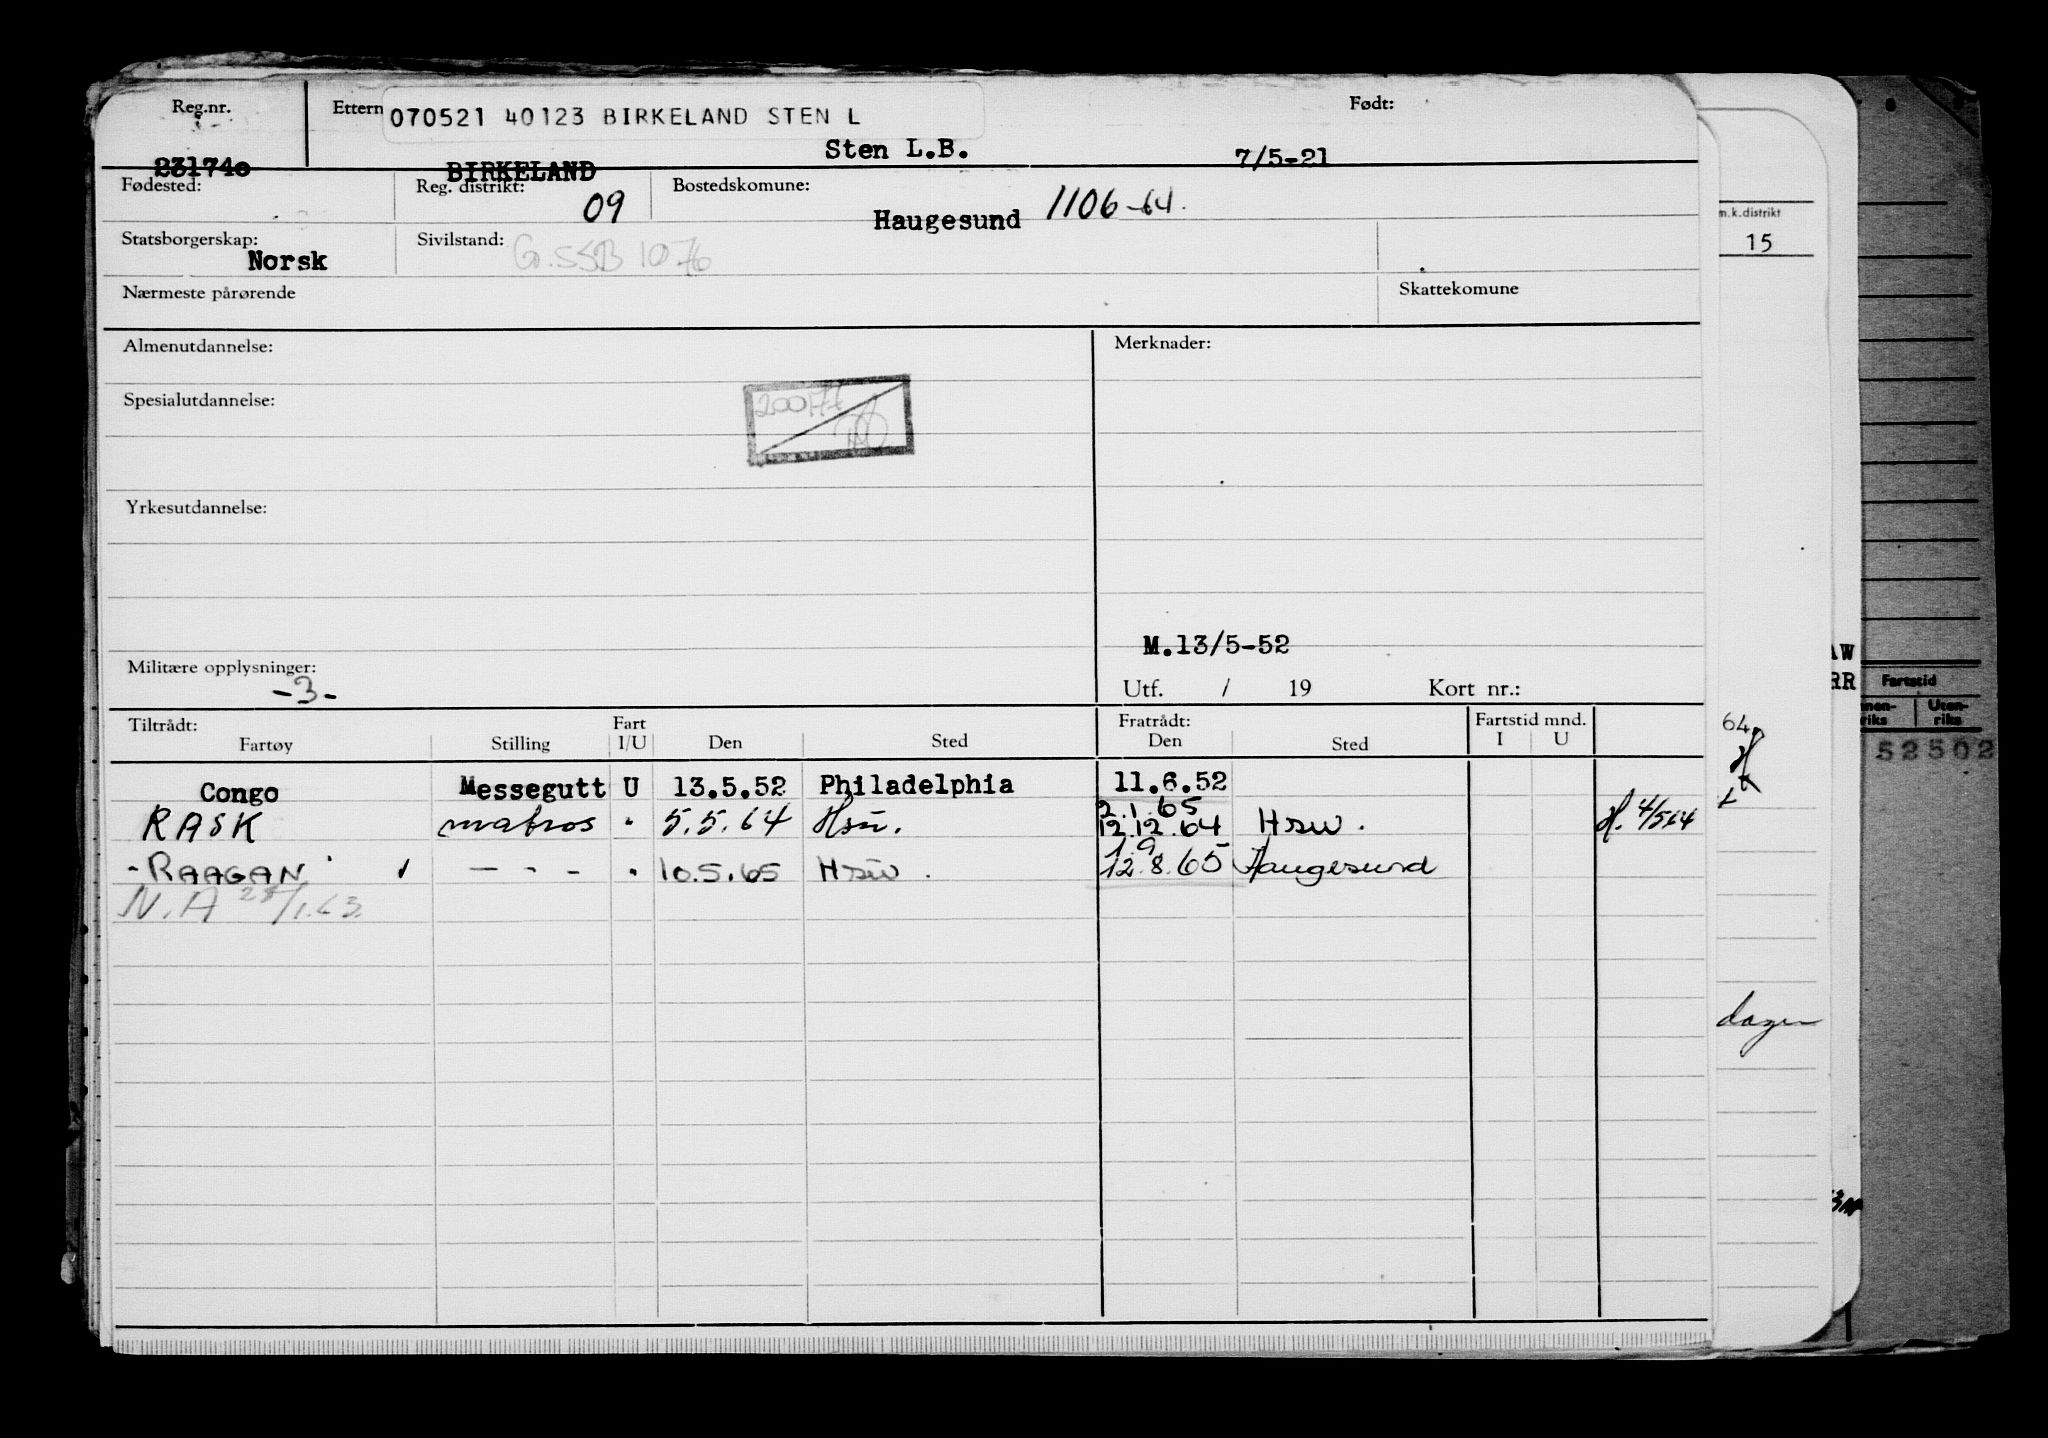 Reg.nr. Ettern 070521 40123 BIRKELAND STEN L Født:
231740 BIRKELAND Sten L.B. 7/5-21
Fødested: Reg. distrikt: 09 Bostedskomune: Haugesund 1106-64.
Statsborgerskap: Norsk Sivilstand: G.SSB 1076
Nærmeste pårørende Skattekomune
Almenutdannelse: Merknader:
Spesialutdannelse: 200177
Yrkesutdannelse:
M.13/5-52
Militære opplysninger: -3- Utf. / 19 Kort nr.:
Tiltrådt: Fart Fratrådt: Fartstid mnd.
Fartøy Stilling I/U Den Sted Den Sted I U
Congo Messegutt U 13.5.52 Philadelphia 11.6.52
2.1.65
RASK matros " 5.5.64 Hsu. 12.12.64 Hsw. H. 4/5.64
- RAAGAN - - - " 10.5.65 Hsw. 12.8.65 Haugesund
N.A 28/1.63
m.k.distrikt
15
AW
RR
Fartstid
nnen-
riks
Uten-
riks
64
52502
dager